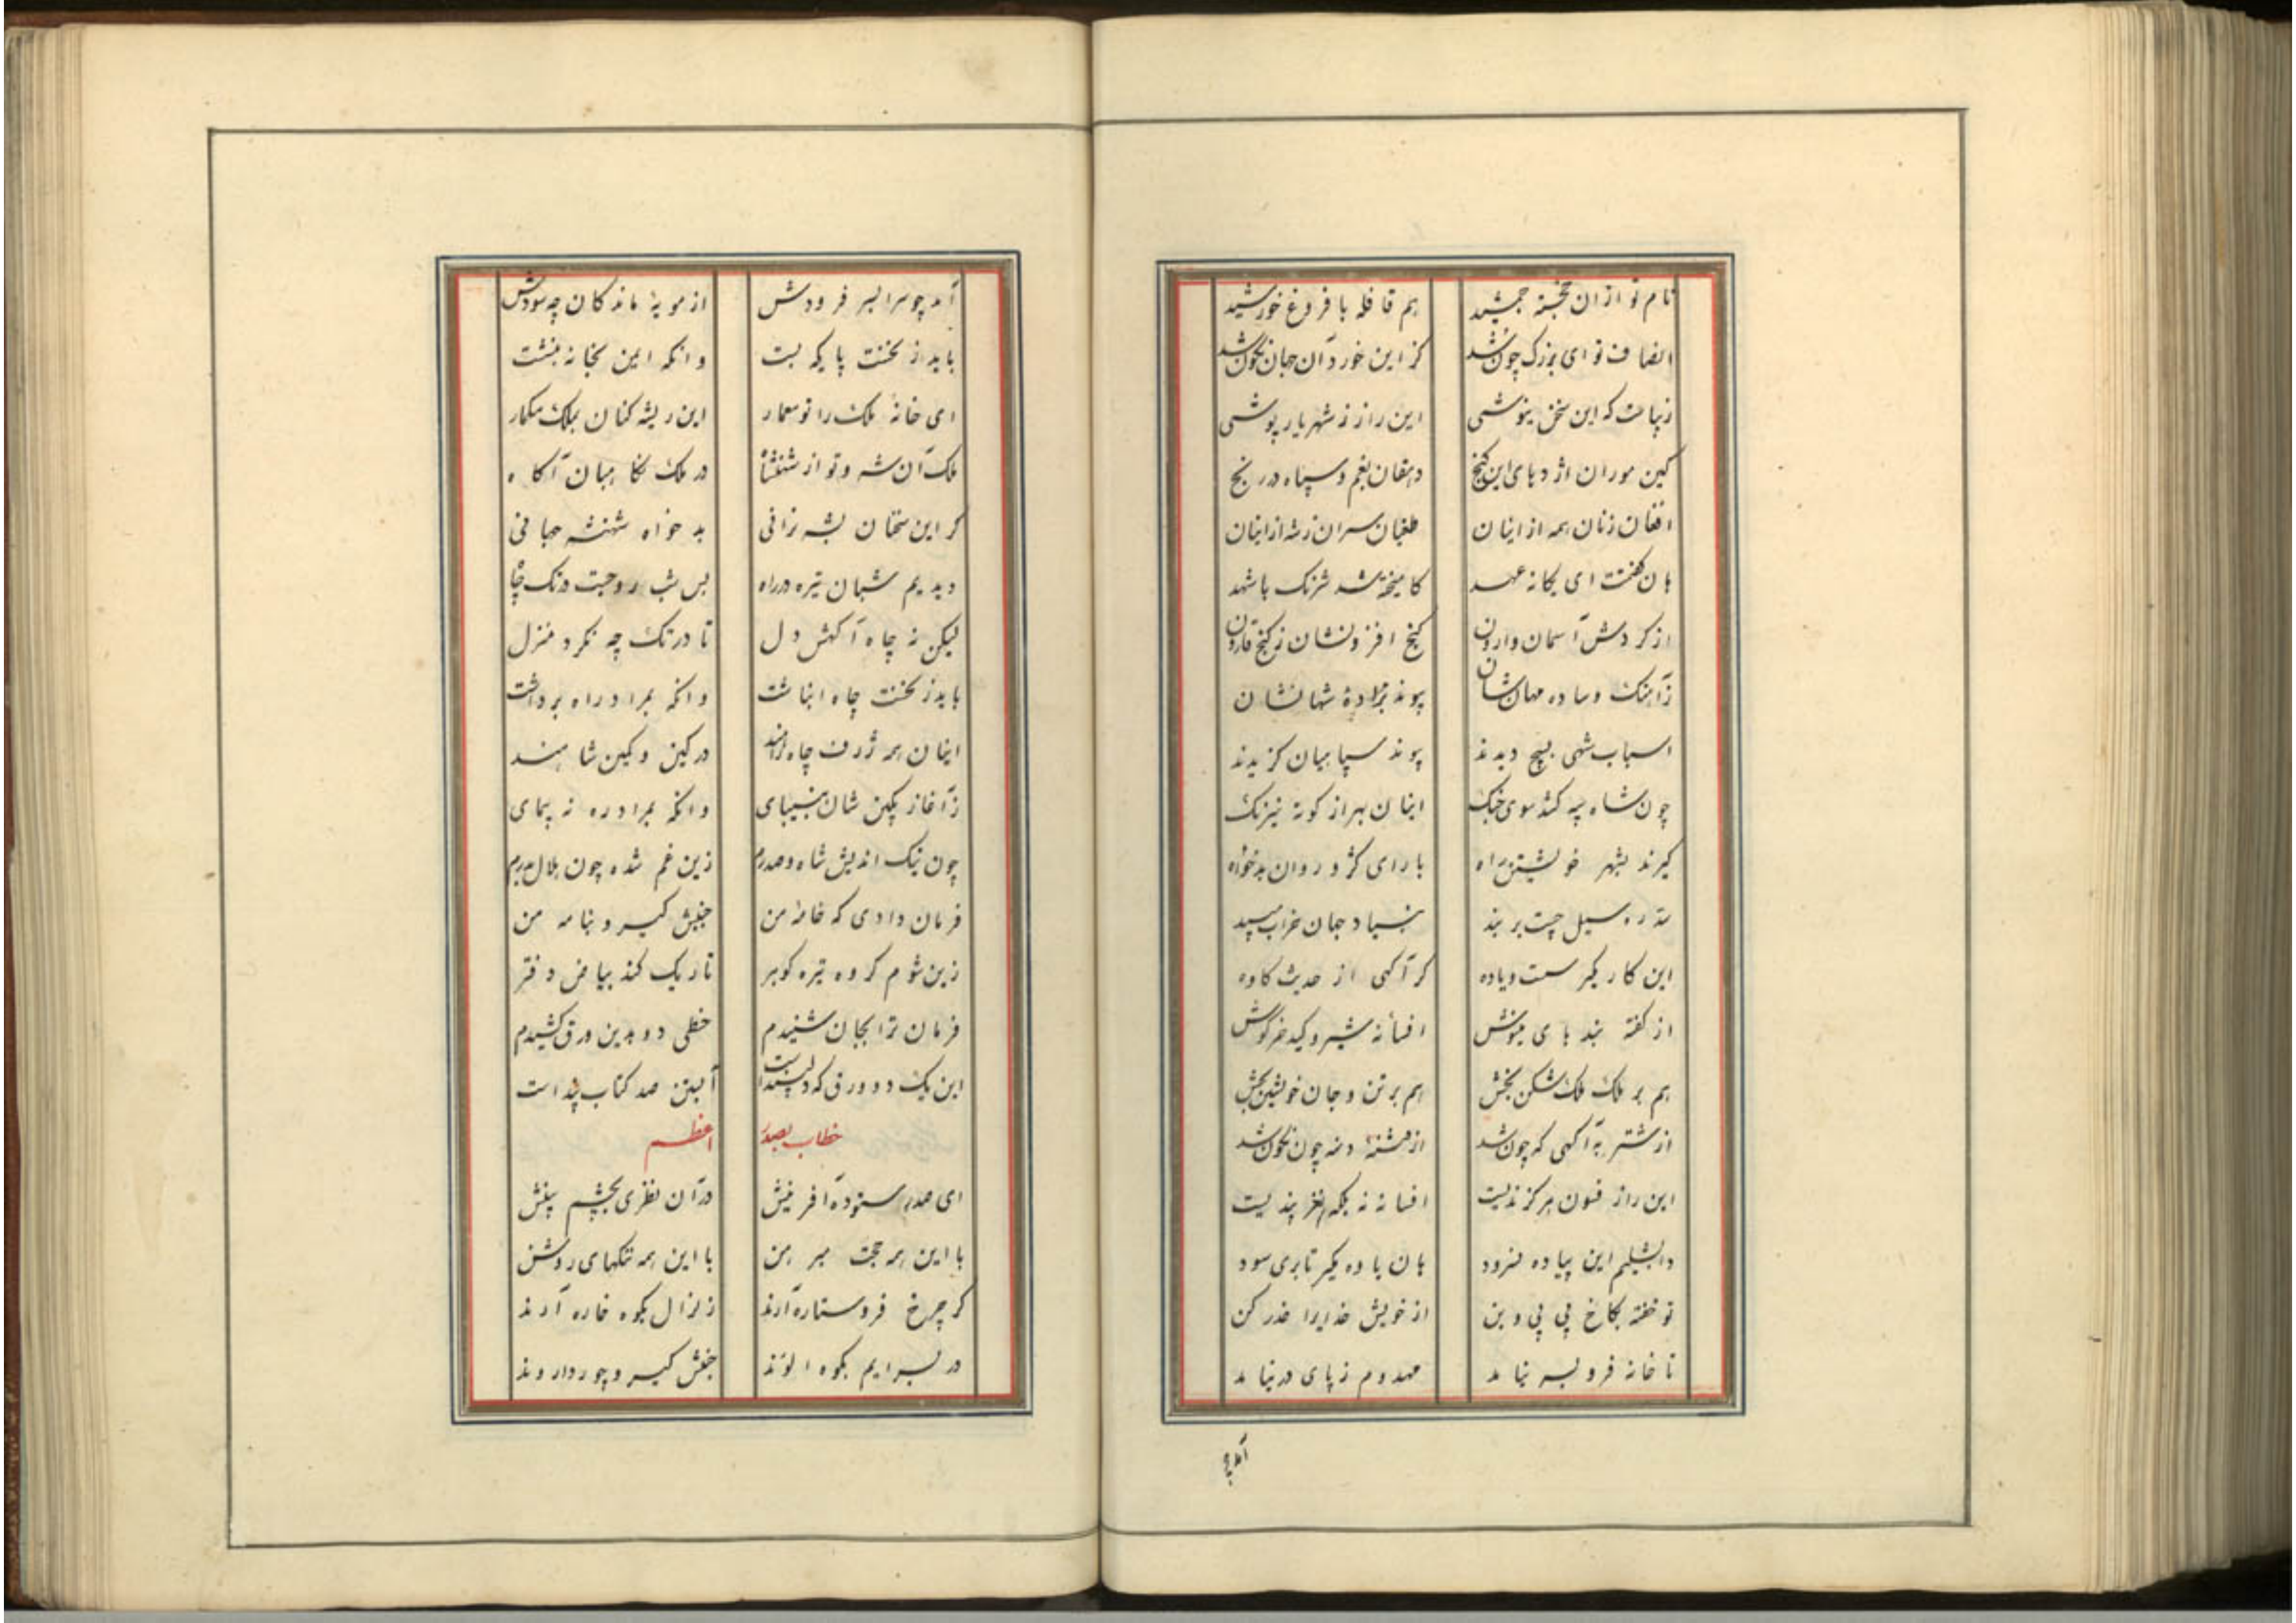 نام تو ازان خجسته جمشید هم قافله با فروغ خورشید
انصاف تو ای بزرگ چون شد کز این خورد آن جهان نخون شد
زیباست که این سخن نیوشی این راز ز شهریار پوشی
کین موران اژدهای این کنج دهقان بغم و سپاه در رنج
افغان زنان همه از اینان طغیان سران زشه از اینان
هان گفتمت ای یگانه عهد کامیخته شد شرنگ با شهد
از کردش آسمان وارون کنج افزونشان ز کنج قارون
زآهنک وساده مهانشان پیوند نژاده شهانشان
اسباب شهی بسیج دیدند پیوند سپاهیان کزیدند
چون شاه سپه کشد سوی جنک اینان بهزار کونه نیرنک
کیرند بشهر خویشتن راه با رای کژ و روان بدخواه
سد ره سیل چست بربند بنیاد جهان خراب مپسند
این کار مکیر سست و یاوه کر آکهی از حدیث کاوه
از کفته پندهای مینوش افسانه شیر و کید خرکوش
هم بر ملک ملک شکن بخش هم بر تن و جان خویشتن بخش
از شتربه آکهی که چون شد از دمنه چون نخون شد
این راز فسون هرکز ندیست افسانه نه بلکه نغز پندیست
دابشلیم این پیاده نسرود هان یاوه مکیر تا بری سود
تو خفته بکاخ بی پی و بن از خویش خدایرا حذر کن
تا خانه فرو بسر نیامد مهدوم ز پای در نیامد
آمد چو
آمد چو سرا بسر فرودش از مویه ماندکان چه سودش
باید ز نخست پایکه بست وانکه ایمن بخانه بنشست
ای خانه ملک را تو معمار این ریشه کنان بملک مکمار
ملک آن شه و تو از شهنشاه در ملک نکاهبان آکاه
کر این سخنان بشه نرانی بدخواه شهنشه جهانی
دیدیم شبان تیره در راه بس شب رو جست در تک چاه
لیکن نه چاه آکهش دل تا در تک چه نکرد منزل
باید ز نخست چاه انباشت وانکه بمراد راه برداشت
اینان همه ژرف چاه راهند در کین و کمین شاهند
زآغاز بکن شان بنیبای وانکه بمراد ره نه پیمای
چون نیک اندیش شاه و صدرم زین غم شده چون هلال بدرم
فرمان دادی که خامه من جنبش کیرد بنامه من
زین شوم کروه تیره کوهر تاریک کند بیاض دفتر
فرمان ترا بجان شنیدم خطی دو بدین ورق کشیدم
این یک دو ورق که دلپسند است آبستن صد کتاب پند است
خطاب بصدر اعظم
ای صدر ستوده آفرینش در آن نظری بچشم بینش
با این همه حجت مبرهن با این همه نکتهای روشن
کر چرخ فرو ستاره آرند زلزال بکوه خاره آرند
در بسرایم بکوه الوند جنبش کیرد چو رود اروند